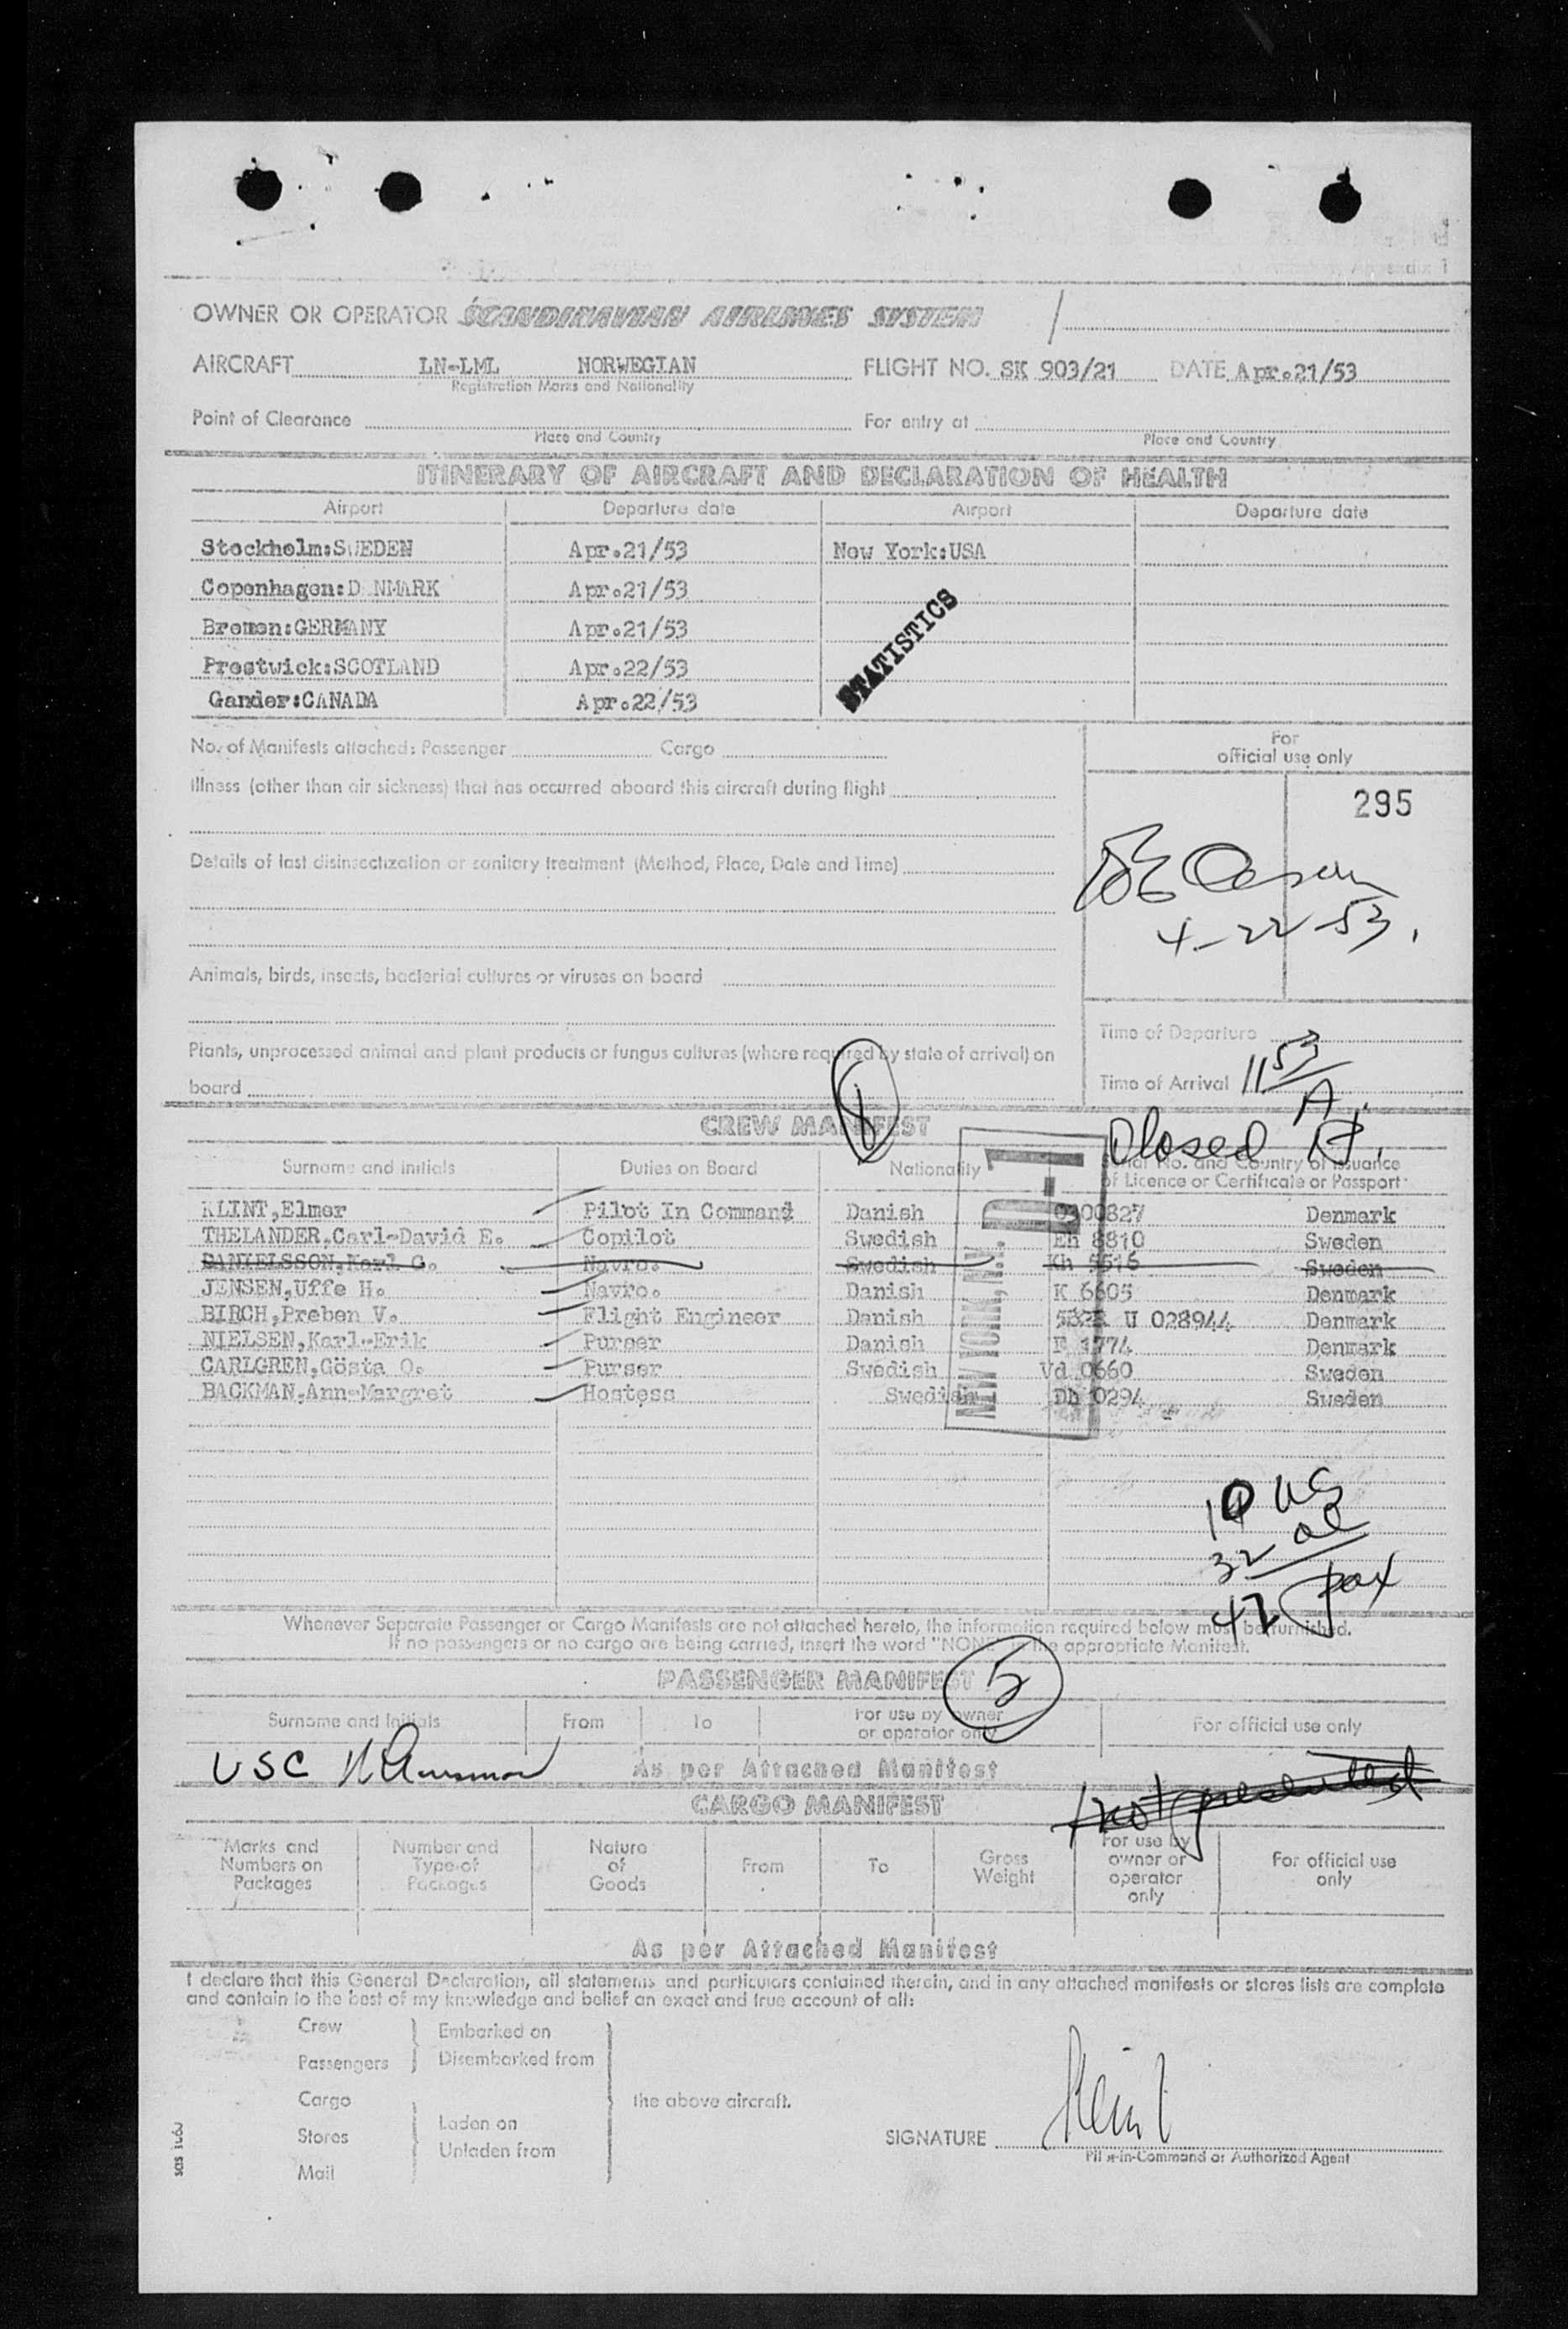 OWNER OR OPERATOR SCANDINAVIAN AIRLINES SYSTEM
AIRCRAFT LN-LML NORWEGIAN FLIGHT NO. SK 903/21 DATE Apr.21/53
Registration Marks and Nationality
Point of Clearance For entry at
Place and Country Place and Country
ITINERARY OF AIRCRAFT AND DECLARATION OF HEALTH
Airport Departure date Airport Departure date
Stockholm:SWEDEN Apr.21/53 New York:USA
Copenhagen:DENMARK Apr.21/53
Bremen:GERMANY Apr.21/53
Prestwick:SCOTLAND Apr.22/53
Gander:CANADA Apr.22/53
STATISTICS
No. of Manifests attached: Passenger Cargo
For
official use only
Illness (other than air sickness) that has occurred aboard this aircraft during flight
295
Details of last disinsectization or sanitary treatment (Method, Place, Date and Time)
4-22-53.
Animals, birds, insects, bacterial cultures or viruses on board
Time of Departure
Plants, unprocessed animal and plant products or fungus cultures (where required by state of arrival) on
board
Time of Arrival 11 53 A
CREW MANIFEST
Closed
Surname and initials Duties on Board Nationality Serial No. and Country of Issuance
of Licence or Certificate or Passport
KLINT,Elmer Pilot In Command Danish 0300827 Denmark
THELANDER,Carl-David E. Copilot Swedish Eh 8810 Sweden
DANIELSSON,Karl G. Navro. Swedish Kh 5516 Sweden
JENSEN,Uffe H. Navro. Danish K 6605 Denmark
BIRCH,Preben V. Flight Engineer Danish U 028944 Denmark
NIELSEN,Karl-Erik Purser Danish F 1774 Denmark
CARLGREN,Gösta O. Purser Swedish Vd 0660 Sweden
BACKMAN,Ann-Margret Hostess Swedish Dh 0294 Sweden
NEW YORK, N.Y. D-1
10 us
32 al
42 pax
Whenever Separate Passenger or Cargo Manifests are not attached hereto, the information required below must be furnished.
If no passengers or no cargo are being carried, insert the word "NONE" in the appropriate Manifest.
PASSENGER MANIFEST
5
Surname and Initials From To For use by owner
or operator only For official use only
USC
As per Attached Manifest
not presented
CARGO MANIFEST
Marks and
Numbers on
Packages
Number and
Type of
Packages
Nature
of
Goods
From
To
Gross
Weight
For use by
owner or
operator
only
For official use
only
As per Attached Manifest
I declare that this General Declaration, all statements and particulars contained therein, and in any attached manifests or stores lists are complete
and contain to the best of my knowledge and belief an exact and true account of all:
Crew Embarked on
Passengers Disembarked from
Cargo the above aircraft.
Stores Laden on
Unladen from
Mail
SIGNATURE Klint
Pilot-in-Command or Authorized Agent